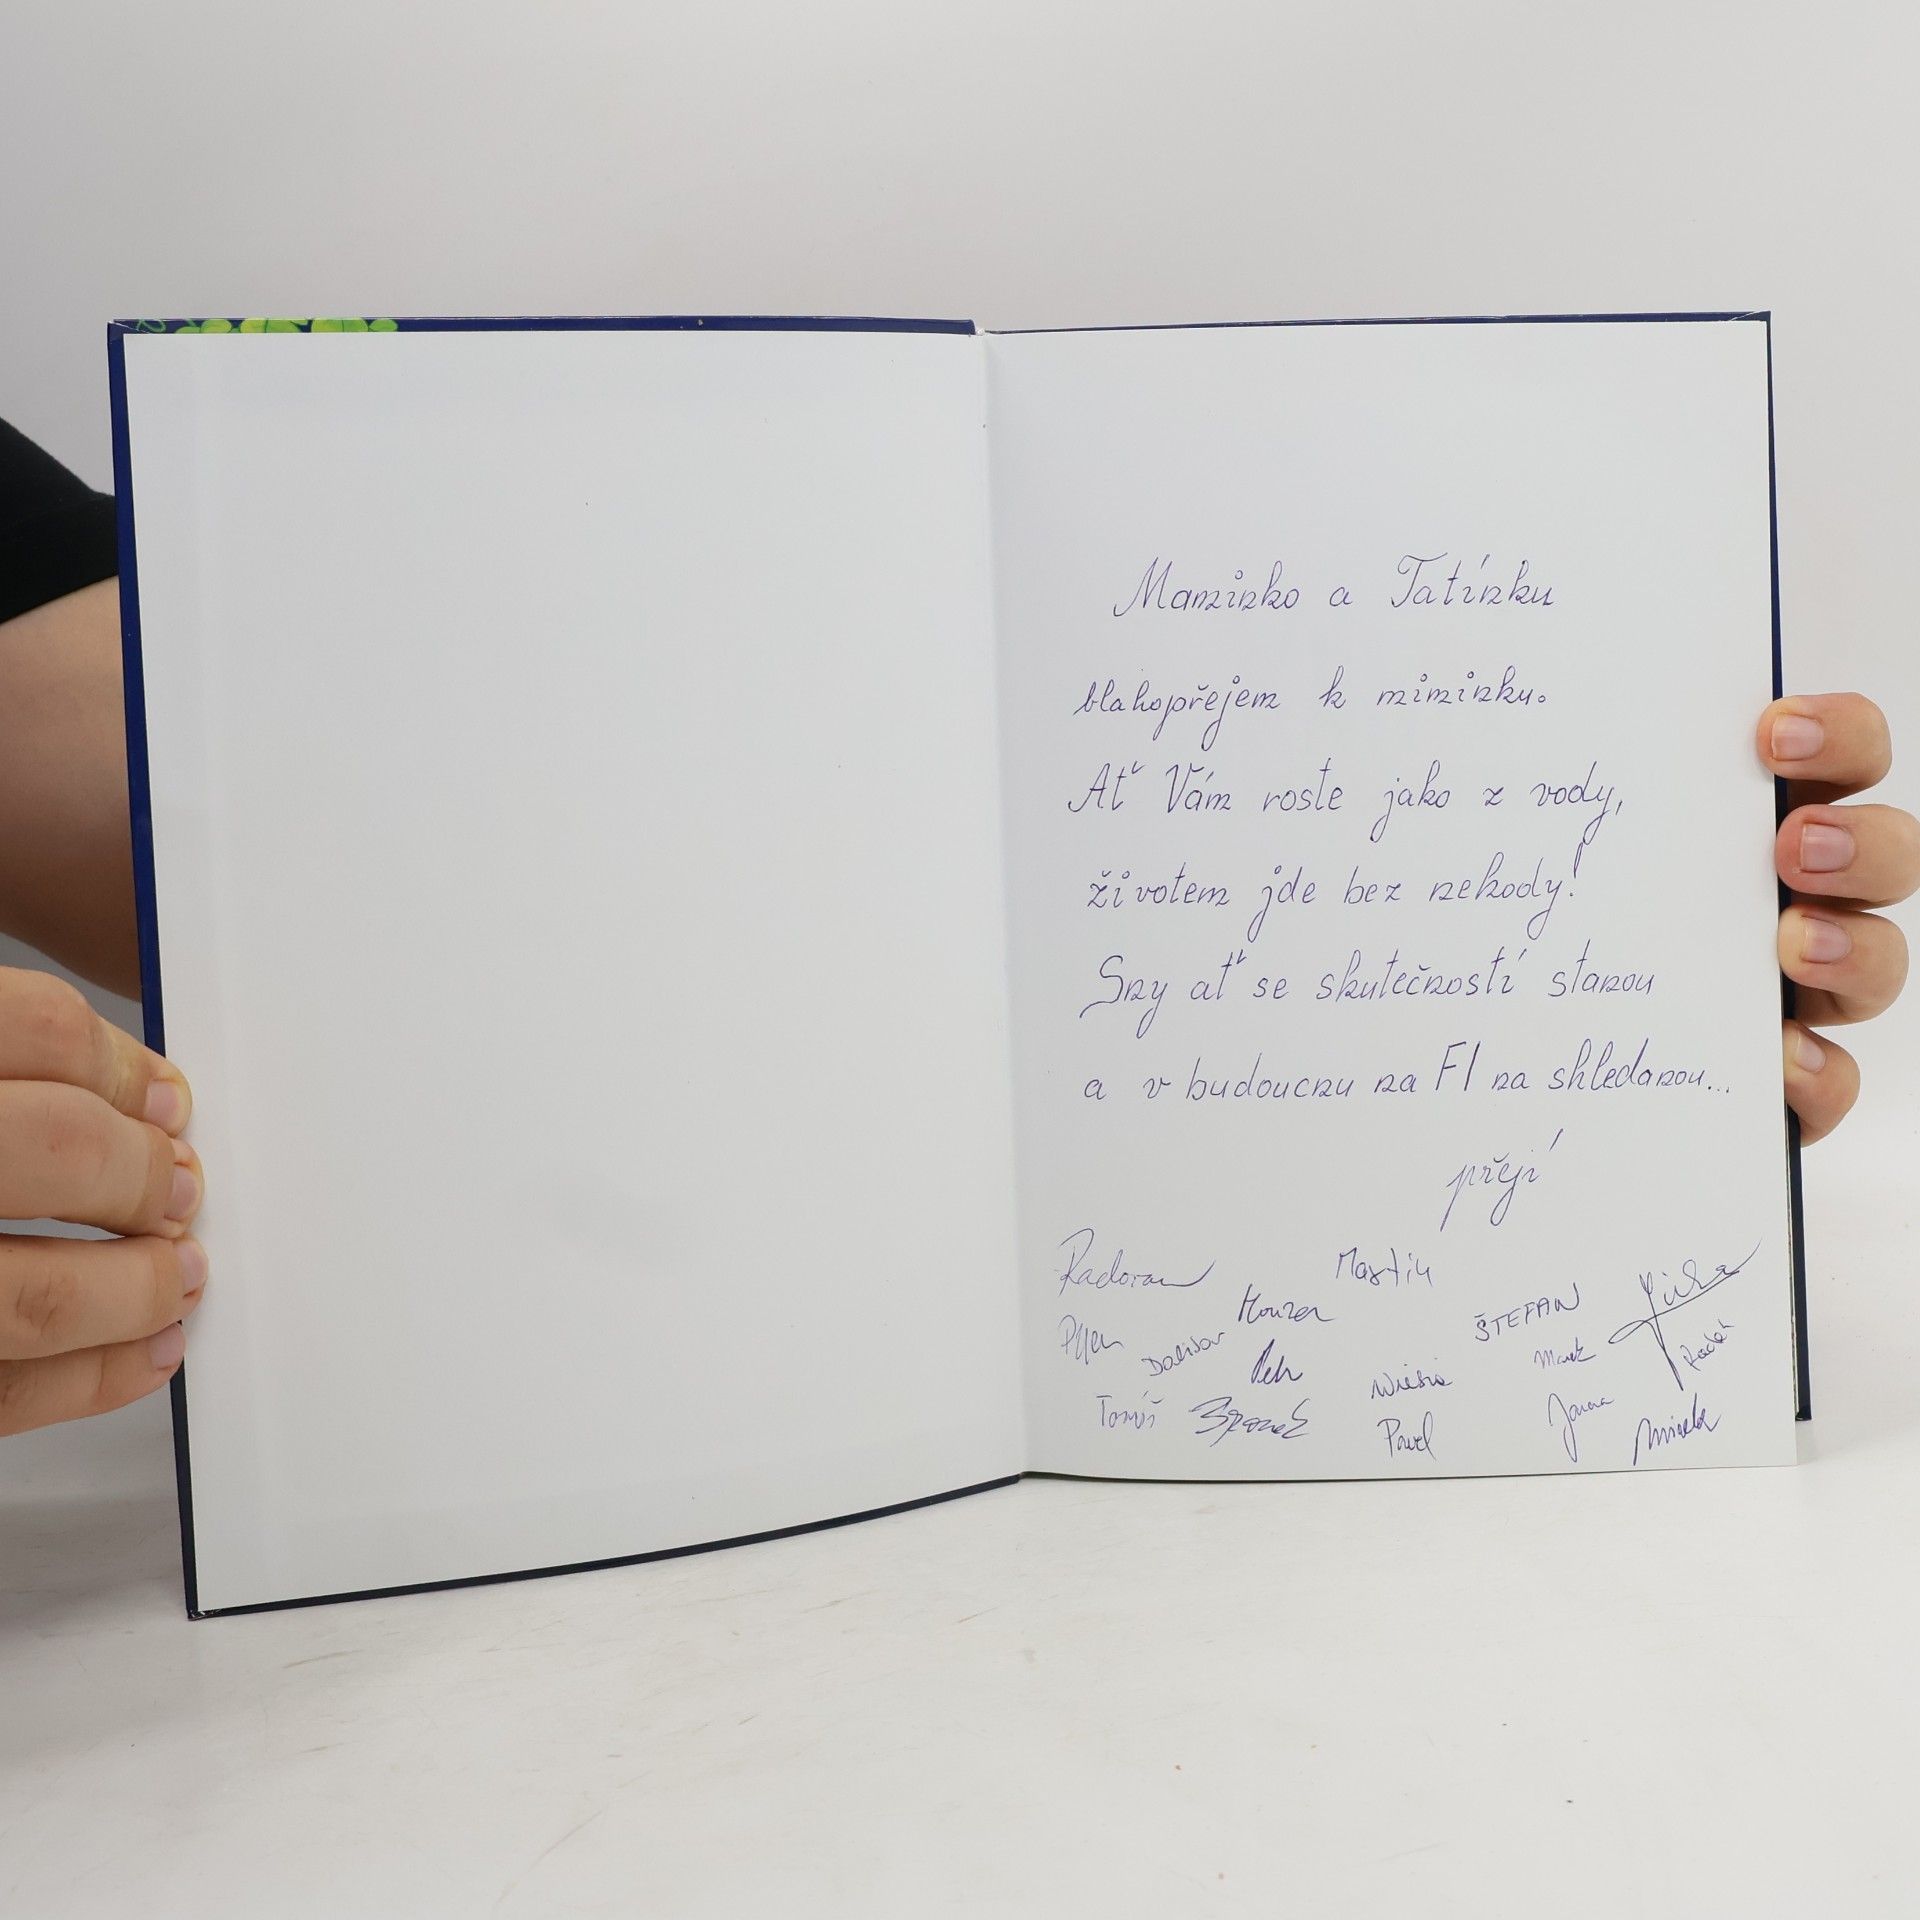 Maminko a Tatínku
blahopřejem k miminku.
Ať Vám roste jako z vody,
životem jde bez nehody!
Sny ať se skutečností stanou
a v budoucnu na FI na shledanou...
přejí
Radovan
Martin
Honza
ŠTEFAN
Jirka
Dalibor
Petr
Marek
Radek
Tomáš
Pavel
Jana